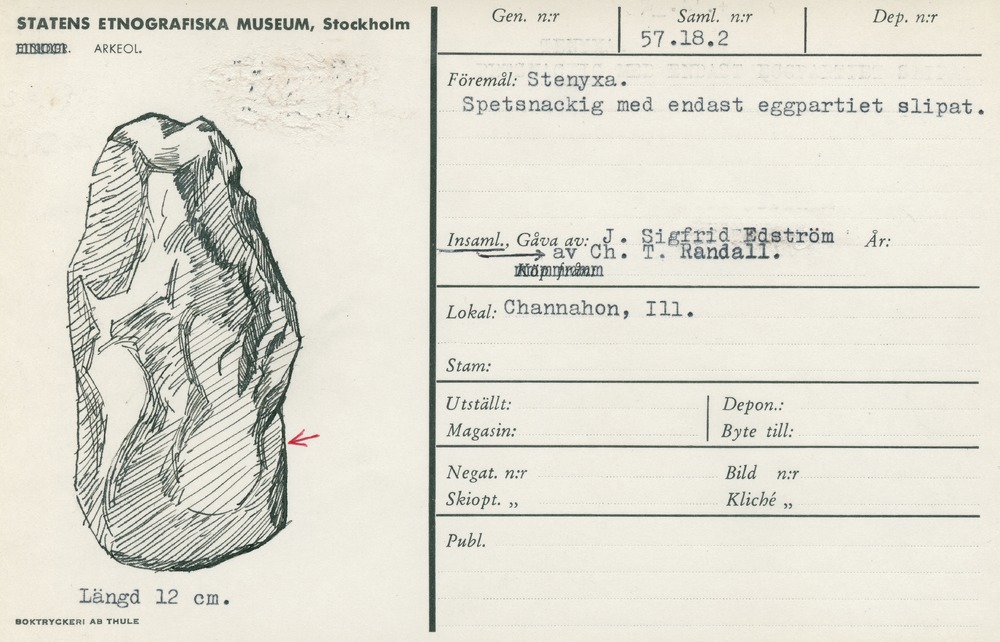 STATENS ETNOGRAFISKA MUSEUM, Stockholm
ARKEOL.
Längd 12 cm.
BOKTRYCKERI AB THULE
Gen. n:r Saml. n:r Dep. n:r
57.18.2
Föremål: Stenyxa.
Spetsnackig med endast eggpartiet slipat.
Insaml., Gåva av: J. Sigfrid Edström År:
av Ch. T. Randall.
Köp från
Lokal: Channahon, Ill.
Stam:
Utställt: Depon.:
Magasin: Byte till:
Negat. n:r Bild n:r
Skiopt. „ Kliché „
Publ.